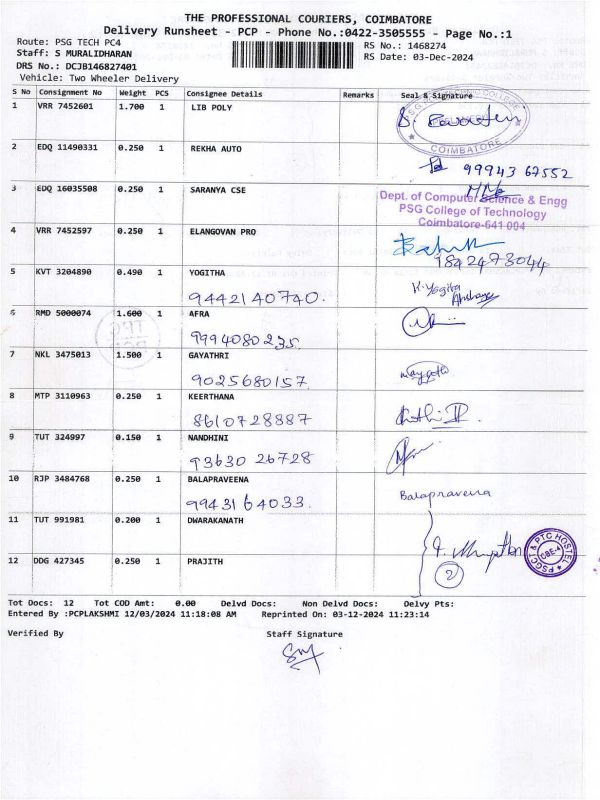 THE PROFESSIONAL COURIERS, COIMBATORE
Delivery Runsheet - PCP - Phone No.:0422-3505555 - Page No.:1
Route: PSG TECH PC4 RS No.: 1468274
Staff: S MURALIDHARAN RS Date: 03-Dec-2024
DRS No.: DCJB146827401
Vehicle: Two Wheeler Delivery
S No Consignment No Weight PCS Consignee Details Remarks Seal & Signature
1 VRR 7452601 1.700 1 LIB POLY
COIMBATORE
2 EDQ 11490331 0.250 1 REKHA AUTO
99943 67552
3 EDQ 16035508 0.250 1 SARANYA CSE
Dept. of Computer Science & Engg
PSG College of Technology
Coimbatore-641 004
4 VRR 7452597 0.250 1 ELANGOVAN PRO
9842473044
5 KVT 3204890 0.490 1 YOGITHA
9442140740. K. Yogita
6 RMD 5000074 1.600 1 AFRA
9994080235.
7 NKL 3475013 1.500 1 GAYATHRI
9025680157.
8 MTP 3110963 0.250 1 KEERTHANA
8610728887
9 TUT 324997 0.150 1 NANDHINI
93630 26728
10 RJP 3484768 0.250 1 BALAPRAVEENA
99431 64033. Balapraveena
11 TUT 991981 0.200 1 DWARAKANATH
PSGCT & PTC HOSTEL
CBE-4
2
12 DDG 427345 0.250 1 PRAJITH
Tot Docs: 12 Tot COD Amt: 0.00 Delvd Docs: Non Delvd Docs: Delvy Pts:
Entered By :PCPLAKSHMI 12/03/2024 11:18:08 AM Reprinted On: 03-12-2024 11:23:14
Verified By Staff Signature